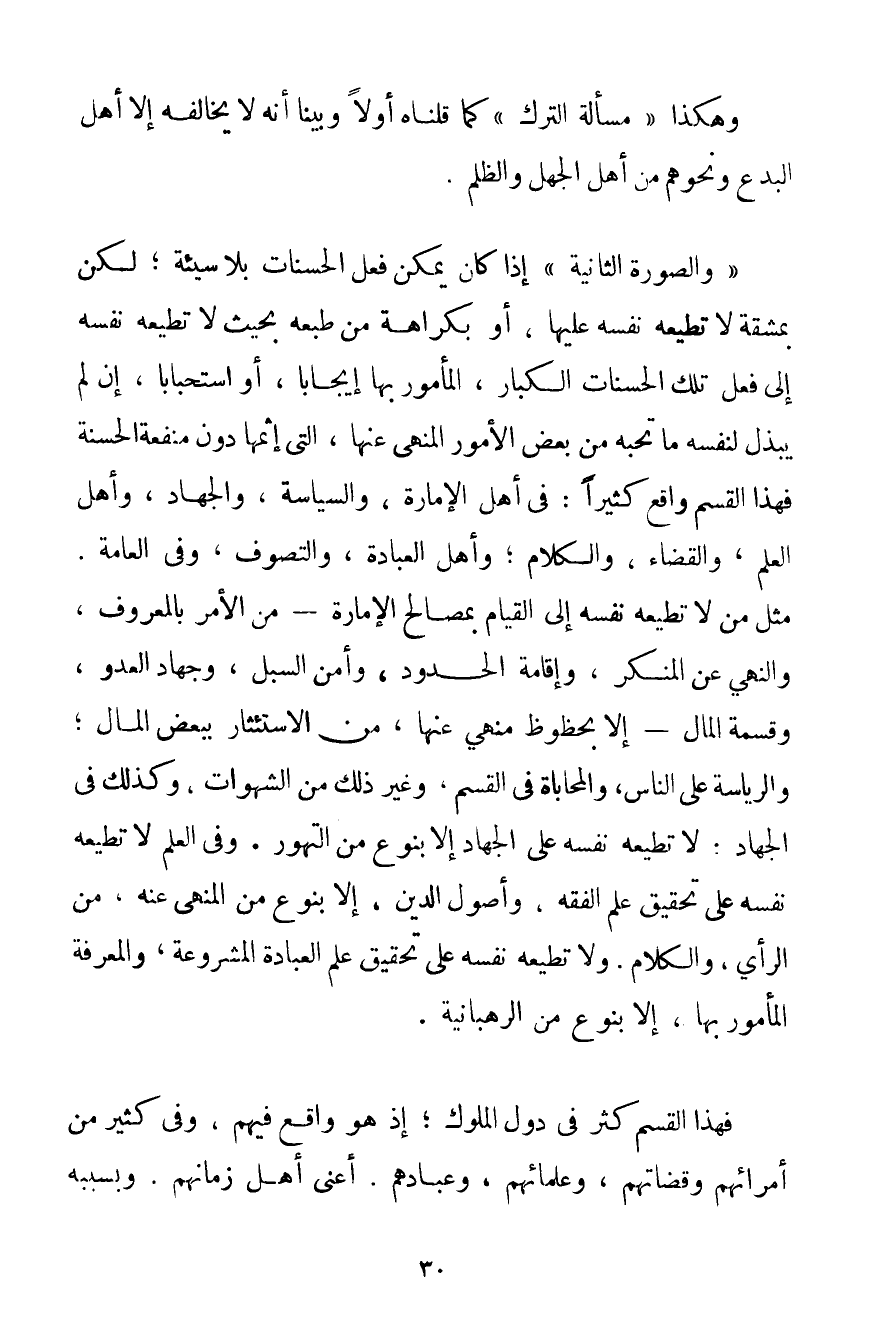 وهكذا « مسألة الترك » كما قلناه أولاً وبينا أنه لا يخالفه إلا أهل
البدع ونحوهم من أهل الجهل والظلم .
« والصورة الثانية » إذا كان يمكن فعل الحسنات بلا سيئة ؛ لكن
بمشقة لا تطيعه نفسه عليها ، أو بكراهة من طبعه بحيث لا تطيعه نفسه
إلى فعل تلك الحسنات الكبار ، المأمور بها إيجابا ، أو استحبابا ، إن لم
يبذل لنفسه ما تحبه من بعض الأمور المنهى عنها ، التى إثمها دون منفعة الحسنة
فهذا القسم واقع كثيراً : فى أهل الإمارة ، والسياسة ، والجهاد ، وأهل
العلم ، والقضاء ، والكلام ؛ وأهل العبادة ، والتصوف ، وفى العامة .
مثل من لا تطيعه نفسه إلى القيام بمصالح الإمارة — من الأمر بالمعروف ،
والنهي عن المنكر ، وإقامة الحدود ، وأمن السبل ، وجهاد العدو ،
وقسمة المال — إلا بحظوظ منهي عنها ، من الاستئثار ببعض المال ؛
والرياسة على الناس، والمحاباة فى القسم ، وغير ذلك من الشهوات ، وكذلك فى
الجهاد : لا تطيعه نفسه على الجهاد إلا بنوع من التهور . وفى العلم لا تطيعه
نفسه على تحقيق علم الفقه ، وأصول الدين ، إلا بنوع من المنهى عنه ، من
الرأي ، والكلام . ولا تطيعه نفسه على تحقيق علم العبادة المشروعة ، والمعرفة
المأمور بها ، إلا بنوع من الرهبانية .
فهذا القسم كثر فى دول الملوك ؛ إذ هو واقع فيهم ، وفى كثير من
أمرائهم وقضاتهم ، وعلمائهم ، وعبادهم . أعنى أهل زمانهم . وبسببه
٣٠